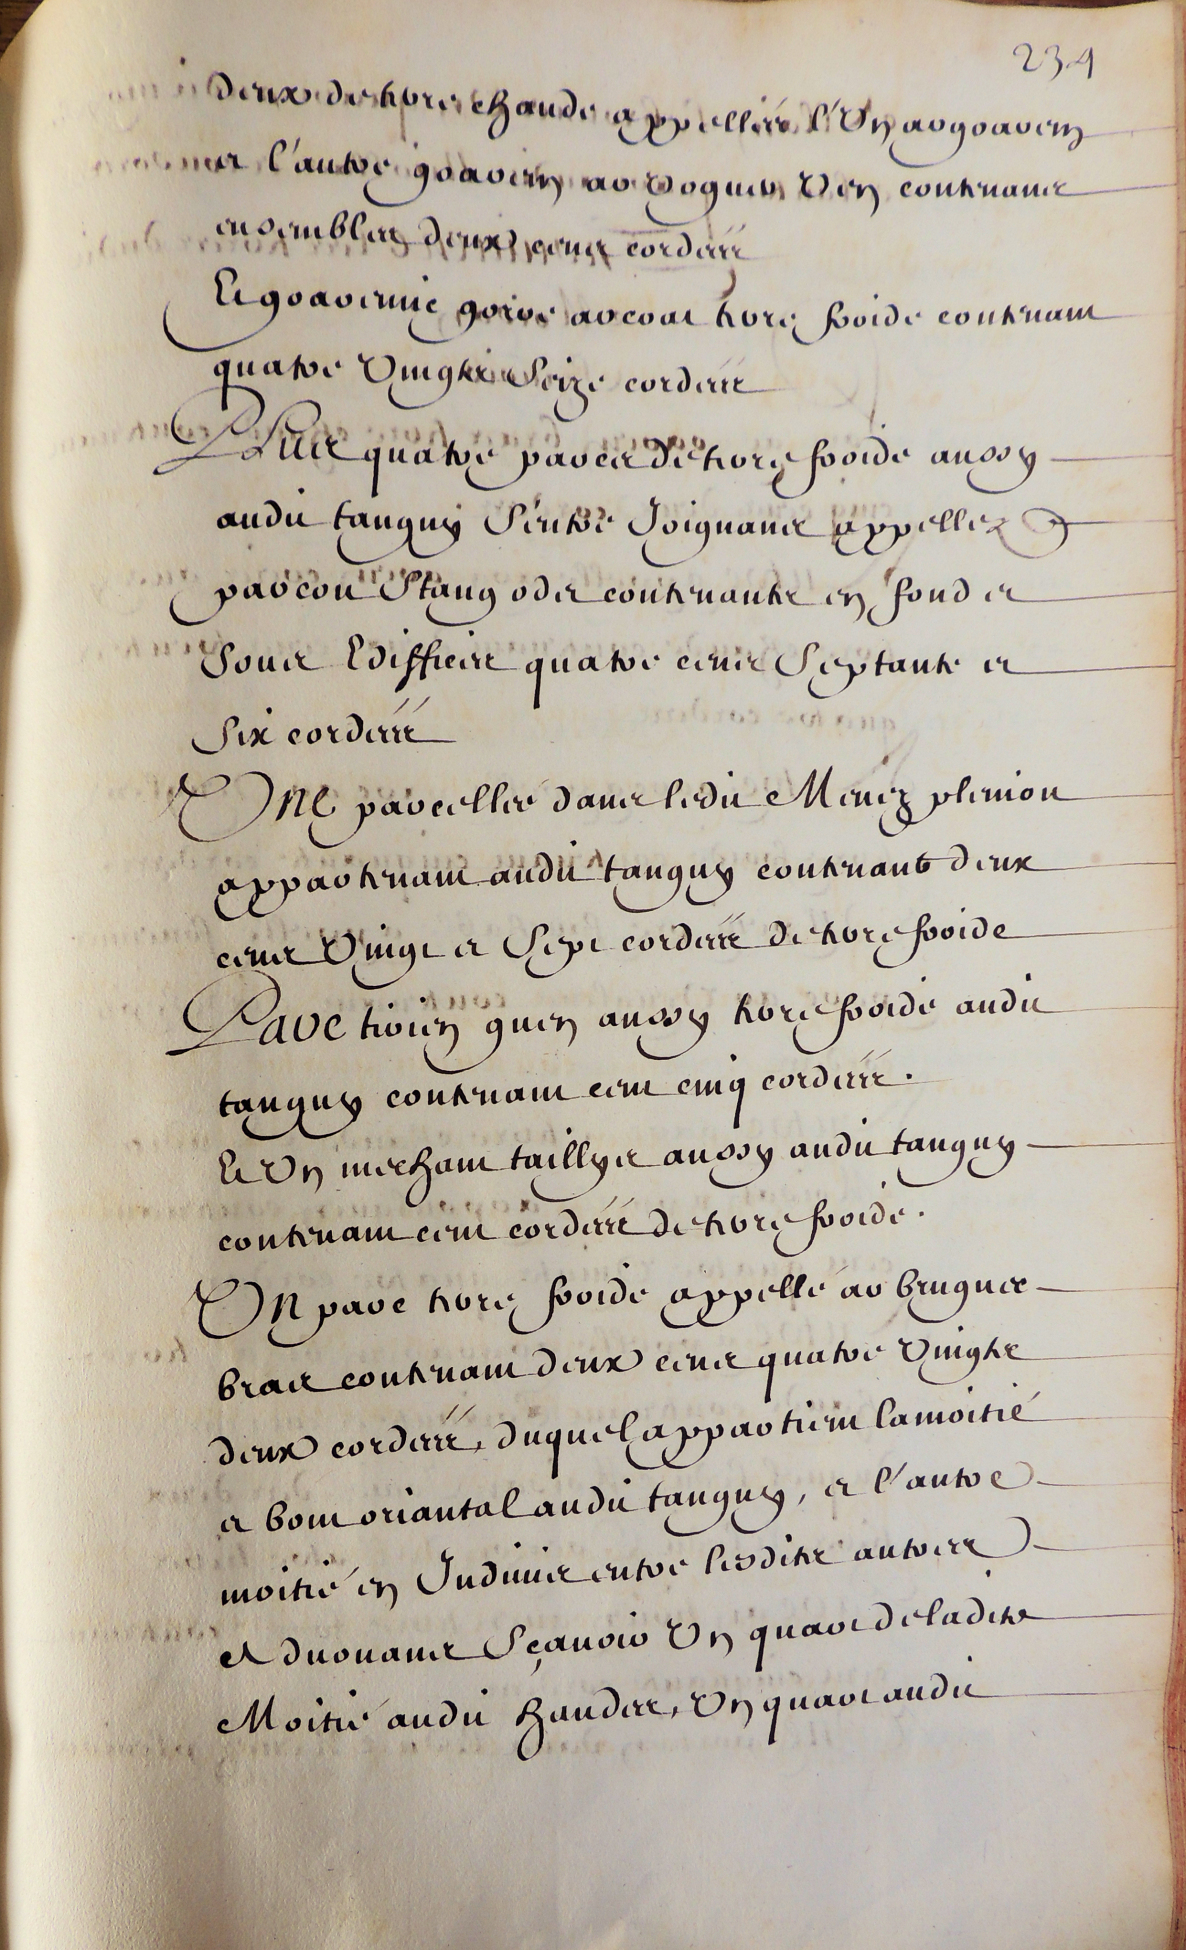 234
deux de terre chaude appellés l'Un argoavem
et l'autre goavern ar roguer Ven contenant
ensembles deux cent cordes
Et goavernic goire arcoat terre froide contenant
quatre Vingts Seize cordes
Plus quatre parcs de terre froide aussy
audit tanguy S'entre Joignant appellez
parcou Stang oder contenants en fond et
Sous Edifices quatre cent Septante et
Six cordes
Une parcelle dans ledit Menez plenion
appartenant audit tanguy contenant deux
cent Vingt et Sept cordes de terre froide
Parc tirien guen aussy terre froide audit
tanguy contenant cent cinq cordes.
Et Un mechant taillys aussy audit tanguy
contenant cent cordes de terre froide.
Un parc terre froide appellé ar bruguec
bras contenant deux cent quatre Vingts
deux cordes, duquel appartient la moitié
et bout oriantal audit tanguy, et l'autre
moitié en Indivis entre lesdits autres
et advouants Sçavoir Un quart de ladite
Moitié audit handes, Un quart audit